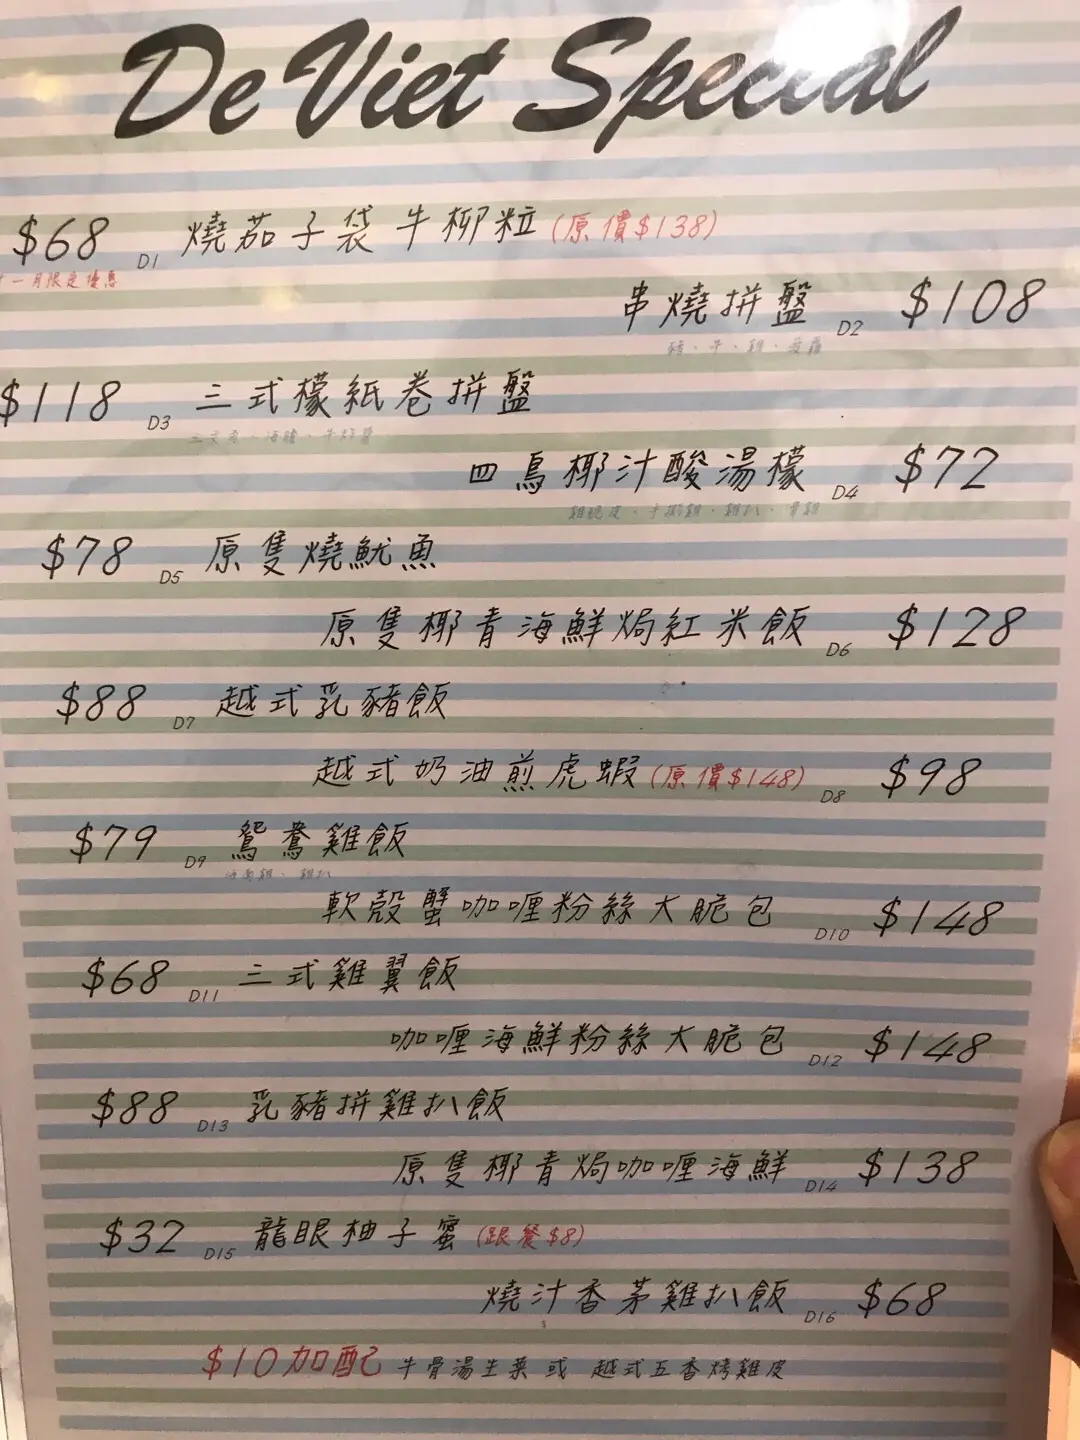 De Viet Special
$68 D1 燒茄子袋牛柳粒 (原價$138)
十一月限定優惠
串燒拼盤 D2 $108
豬、牛、雞、菠蘿
$118 D3 三式檬紙卷拼盤
四鳥椰汁酸湯檬 D4 $72
雞脆皮、手撕雞、雞扒、
$78 D5 原隻燒魷魚
原隻椰青海鮮焗紅米飯 D6 $128
$88 D7 越式乳豬飯
越式奶油煎虎蝦 (原價$148) D8 $98
$79 D9 鴛鴦雞飯
海南雞、雞扒
軟殼蟹咖喱粉絲大脆包 D10 $148
$68 D11 三式雞翼飯
咖喱海鮮粉絲大脆包 D12 $148
$88 D13 乳豬拼雞扒飯
原隻椰青焗咖喱海鮮 D14 $138
$32 D15 龍眼柚子蜜 (跟餐$8)
燒汁香茅雞扒飯 D16 $68
$10加配 牛骨湯生菜 或 越式五香烤雞皮